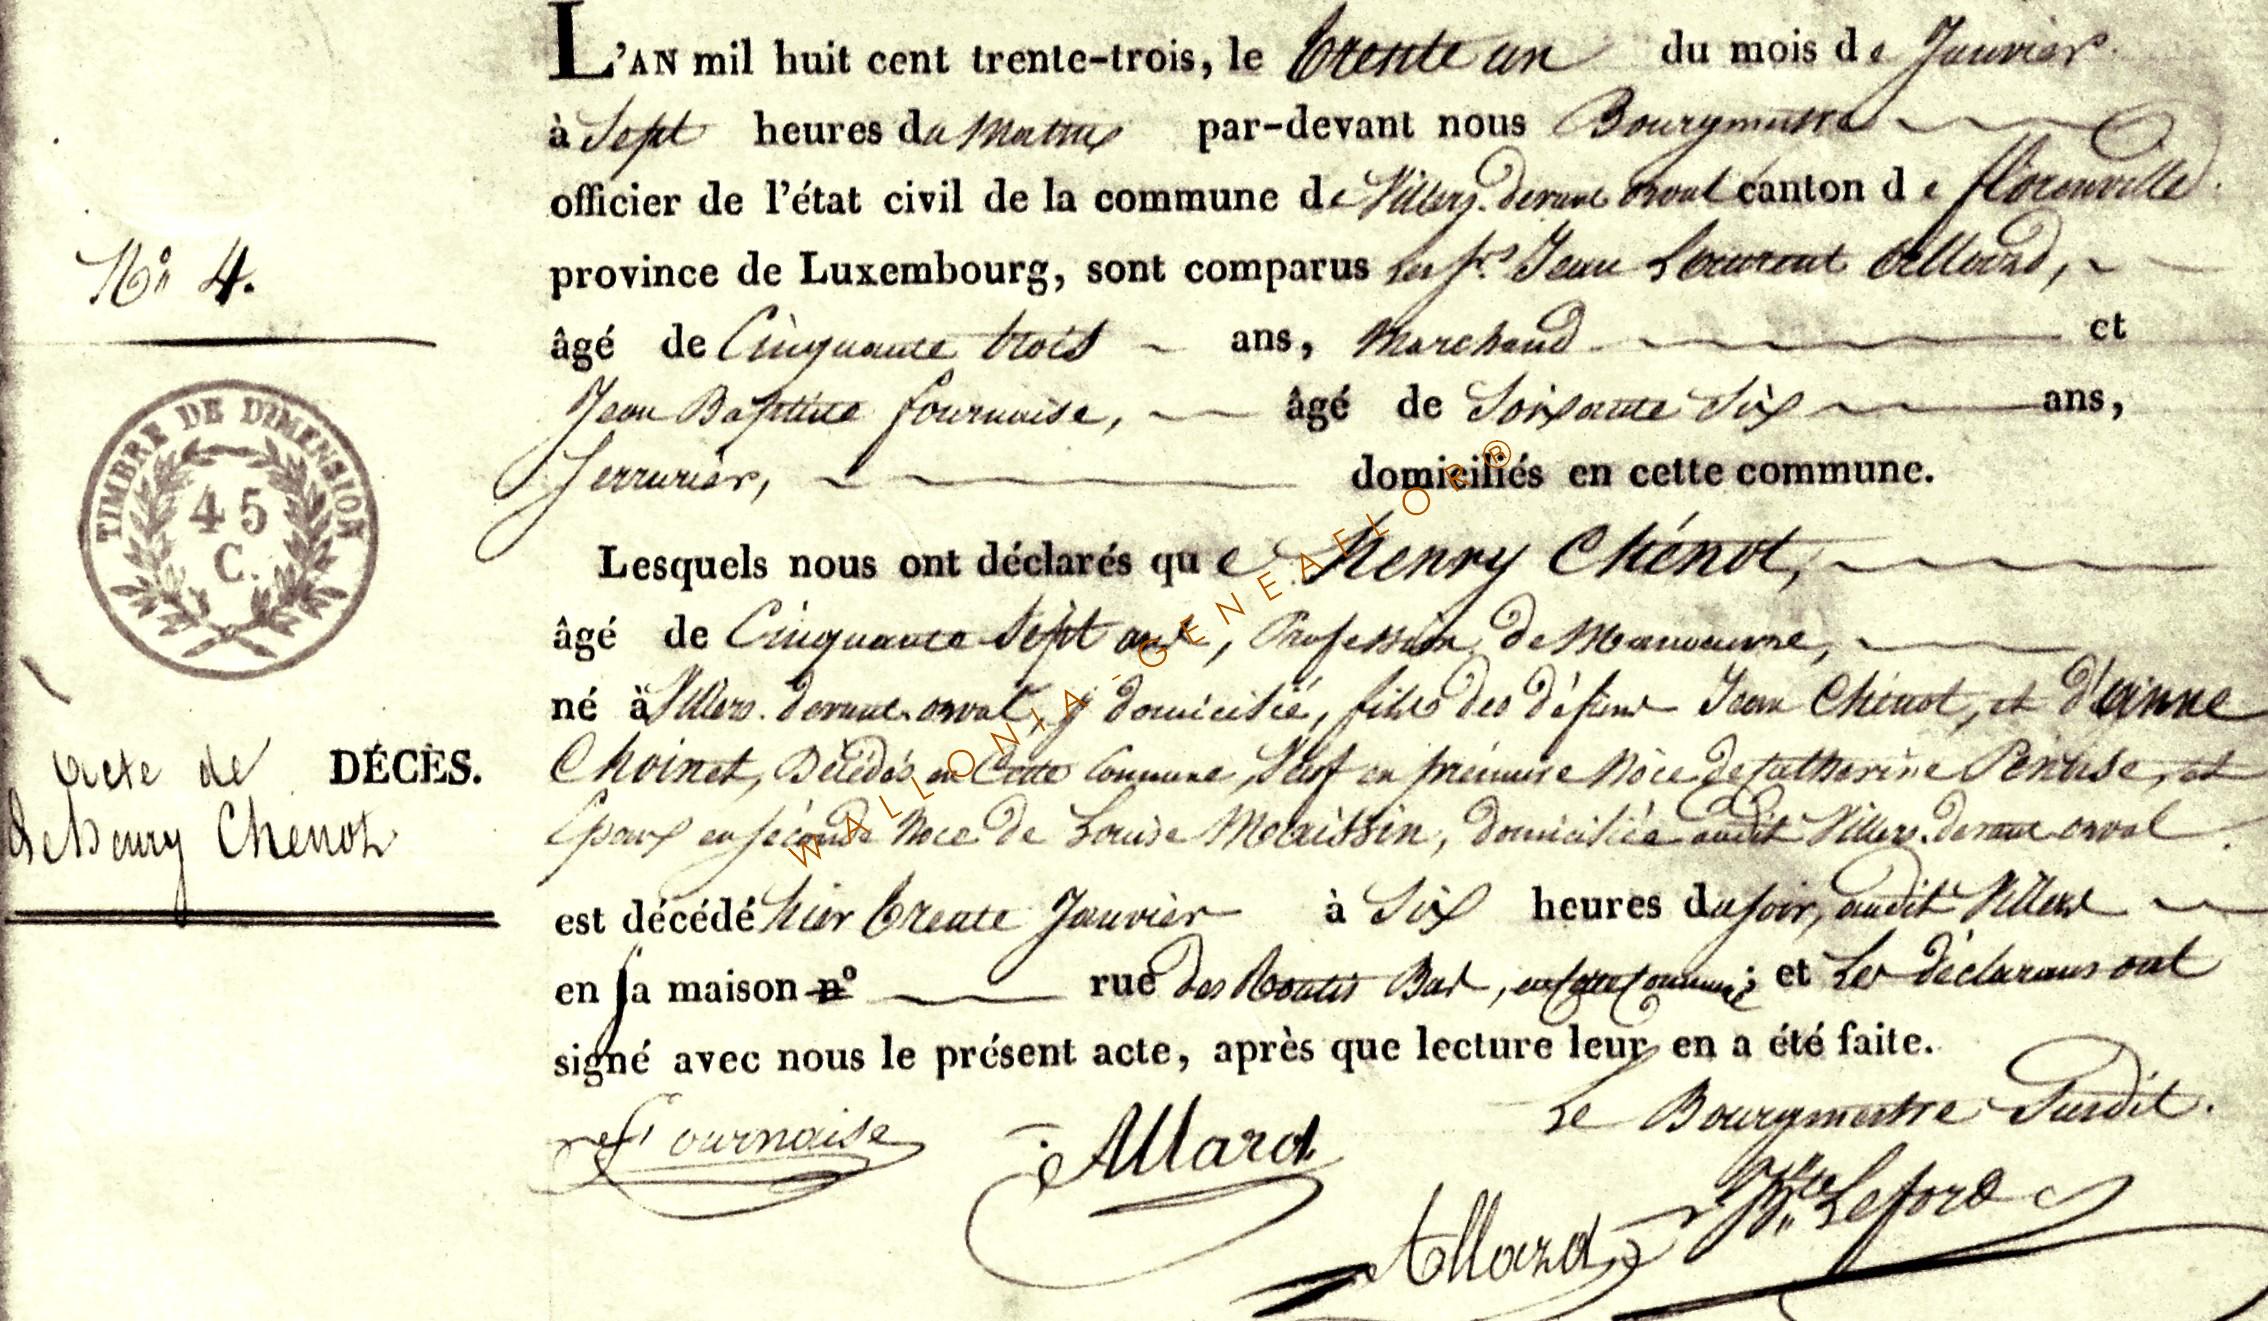 L'AN mil huit cent trente-trois, le trente un du mois de Janvier
à Sept heures du Matin par-devant nous Bourgmestre
officier de l'état civil de la commune de Villers-devant orval canton de florenville
province de Luxembourg, sont comparus les srs Jean Laurent Allard,
âgé de Cinquante trois ans, Marchand et
Jean Baptiste fournaise, âgé de Soixante Six ans,
Serrurier, domiciliés en cette commune.
Lesquels nous ont déclarés que henry Chénot,
âgé de Cinquante Sept ans, Profession de Manoeuvre,
né à Villers-devant-orval, y domicilié, fils des défunt Jean Chénot, et d'anne
Choinet, Décédés en Cette Commune, Veuf en prémière Nôce de Catherine Peruse, et
Epoux en séconde Noce de Louise Maissin, domiciliée audit Villers-devant orval.
est décédé hier trente Janvier à Six heures du soir, audit Villers
en sa maison n° rue des Routis Bas, en Cette Commune; et Les déclarans ont
signé avec nous le présent acte, après que lecture leur en a été faite.
Le Bourgmestre Susdit.
Fournaise
Allard
Leford
Allard
N° 4.
TIMBRE DE DIMENSION
45
C.
Acte de DÉCÈS.
de henry Chenot
WALLONIA-GENEAFLOR®